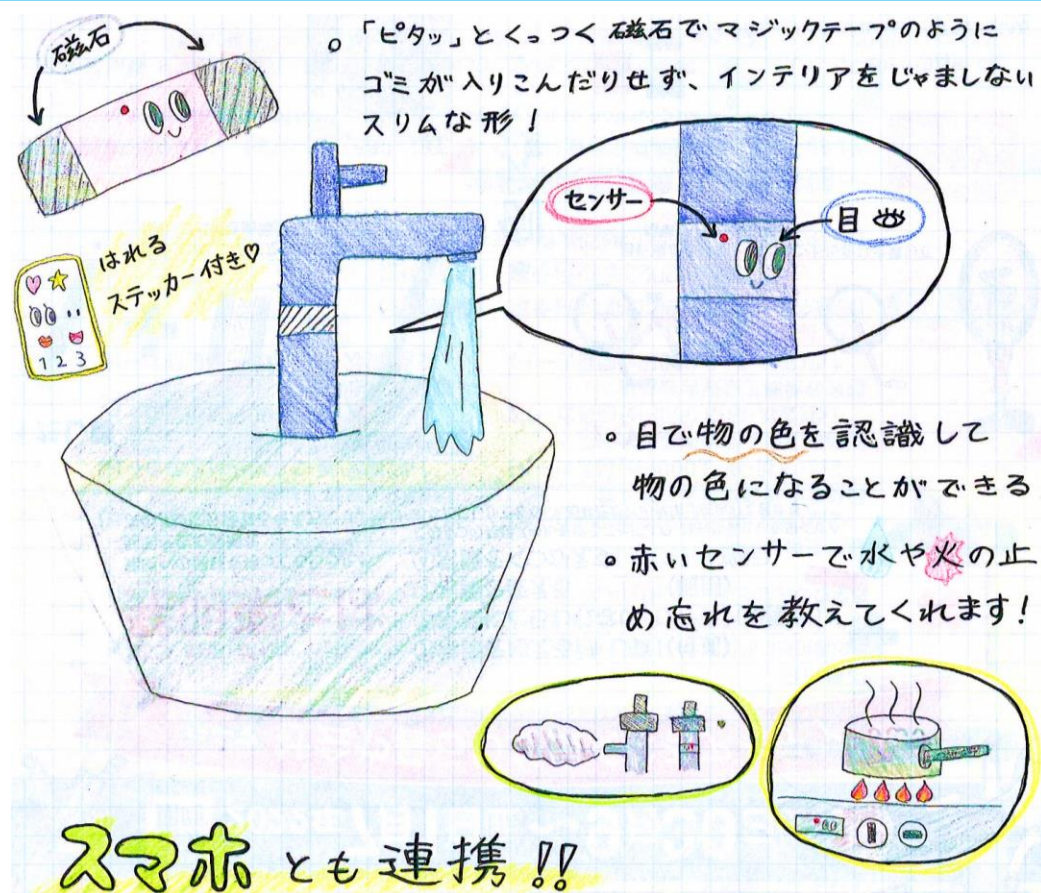 磁石
。「ピタッ」とくっつく磁石でマジックテープのように
ゴミが入りこんだりせず、インテリアをじゃましない
スリムな形!
センサー
目
はれる
ステッカー付き♡
1 2 3
。目で物の色を認識して
物の色になることができる
。赤いセンサーで水や火の止
め忘れを教えてくれます!
スマホとも連携!!